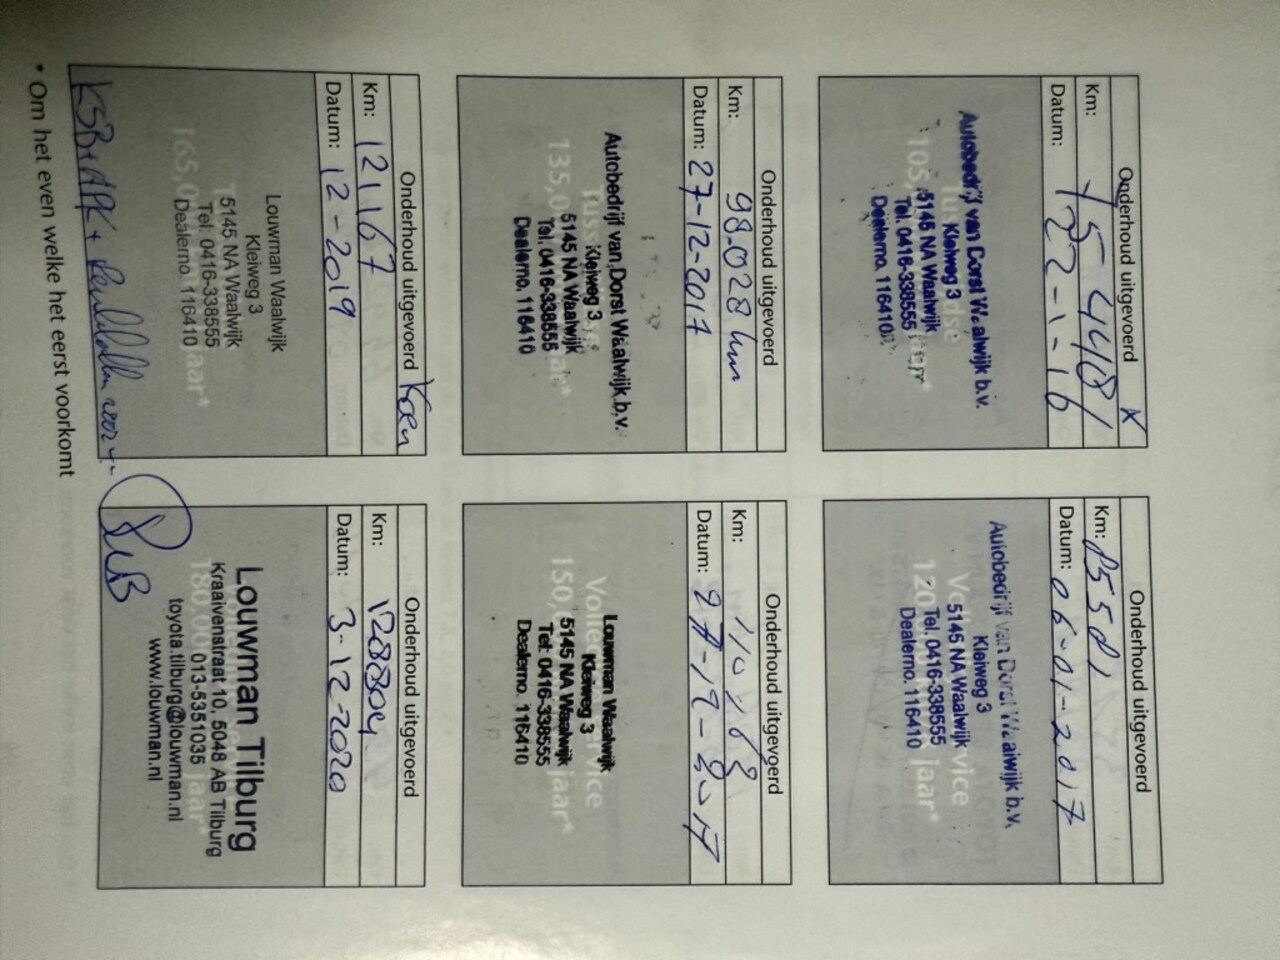 Onderhoud uitgevoerd K
Km: 75 448
Datum: 22-1-16
Autobedrijf van Dorst Waalwijk b.v.
Kleiweg 3
5145 NA Waalwijk
Tel. 0416-338555
Dealerno. 116410
Onderhoud uitgevoerd
Km: 85581
Datum: 06-01-2017
Autobedrijf van Dorst Waalwijk b.v.
Kleiweg 3
5145 NA Waalwijk
Tel. 0416-338555
Dealerno. 116410
jaar*
Onderhoud uitgevoerd
Km: 98.028 km
Datum: 27-12-2017
Autobedrijf van Dorst Waalwijk b.v.
Kleiweg 3
5145 NA Waalwijk
Tel. 0416-338555
Dealerno. 116410
Onderhoud uitgevoerd
Km:
Datum:
Louwman Waalwijk
Kleiweg 3
5145 NA Waalwijk
Tel: 0416-338555
Dealerno. 116410
jaar*
Onderhoud uitgevoerd Koen
Km: 121167
Datum: 12-2019
Louwman Waalwijk
Kleiweg 3
5145 NA Waalwijk
Tel: 0416-338555
Dealerno. 116410
jaar*
KSB + APK +
Onderhoud uitgevoerd
Km: 128804
Datum: 3-12-2020
Louwman Tilburg
Kraaivenstraat 10, 5048 AB Tilburg
013-5351035
jaar*
toyota.tilburg@louwman.nl
www.louwman.nl
* Om het even welke het eerst voorkomt